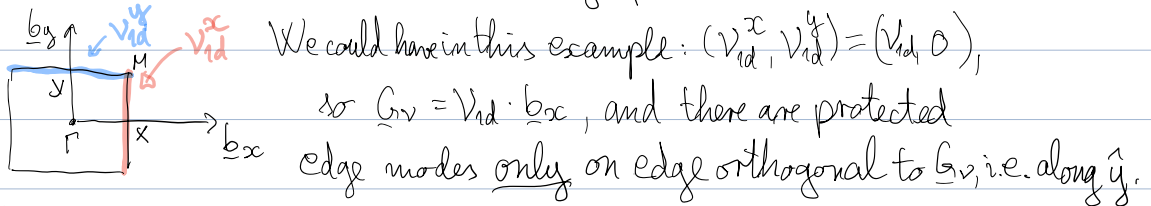 b_y ν_1d^y ν_1d^x We could have in this example: (ν_1d^x, ν_1d^y) = (ν_1d, 0),
M
Y
Γ X b_x so G_ν = ν_1d · b_x, and there are protected
edge modes only on edge orthogonal to G_ν, i.e. along ŷ.